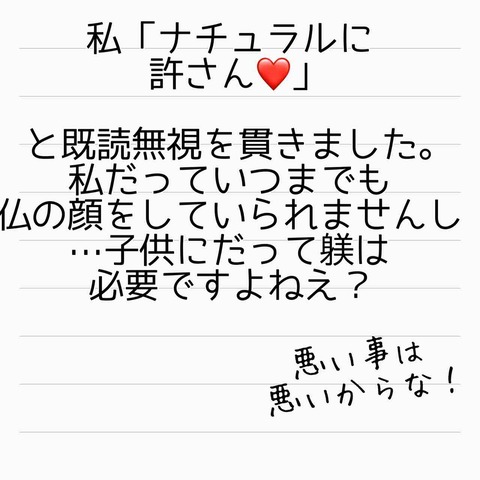 私「ナチュラルに
許さん❤️」
と既読無視を貫きました。
私だっていつまでも
仏の顔をしていられませんし
…子供にだって躾は
必要ですよねえ？
悪い事は
悪いからな！